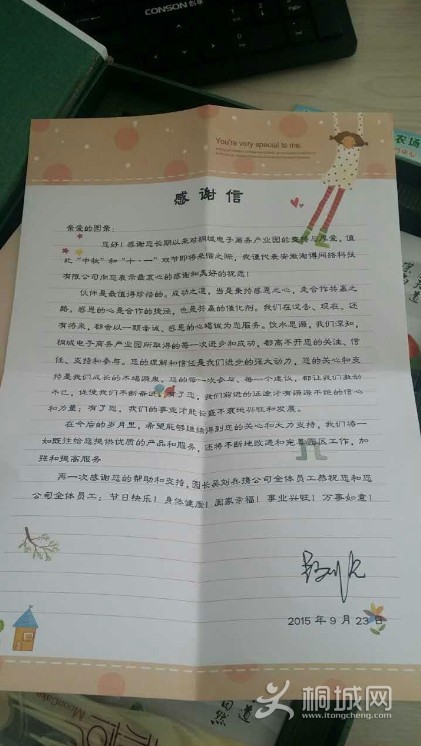 CONSON
You're very special to me.
农场
感谢信
亲爱的图亲：
您好！感谢您长期以来对桐城电子商务产业园的支持与厚爱，值
此“中秋”和“十·一”双节即将来临之际，我谨代表安徽淘得网络科技
有限公司向您表示最衷心的感谢和美好的祝愿！
伙伴是最值得珍惜的。成功之道，当是秉持感恩之心，走合作共赢之
路。感恩的心是合作的捷径，也是共赢的催化剂。我们在过去、现在，还
有将来，都会以一颗赤诚、感恩的心竭诚为您服务。饮水思源，我们深知，
桐城电子商务产业园所取得的每一次进步和成功，都离不开您的关注、信
任、支持和参与。您的理解和信任是我们进步的强大动力，您的关心和支
持是我们成长的不竭源泉。您的每一次参与、每一个建议，都让我们激动
不已，促使我们不断奋进。有了您，我们前进的征途才有源源不绝的信心
和力量；有了您，我们的事业才能长盛不衰地兴旺和发展。
在今后的岁月里，希望能够继续得到您的关心和大力支持，我们将一
如既往给您提供优质的产品和服务，还将不断地改进和完善园区工作，加
强和提高服务
再一次感谢您的帮助和支持，园长吴刘兵携公司全体员工恭祝您和您
公司全体员工：节日快乐！身体健康！阖家幸福！事业兴旺！万事如意！
2015年9月23日
MoonCake
桐城网
www.itongcheng.com